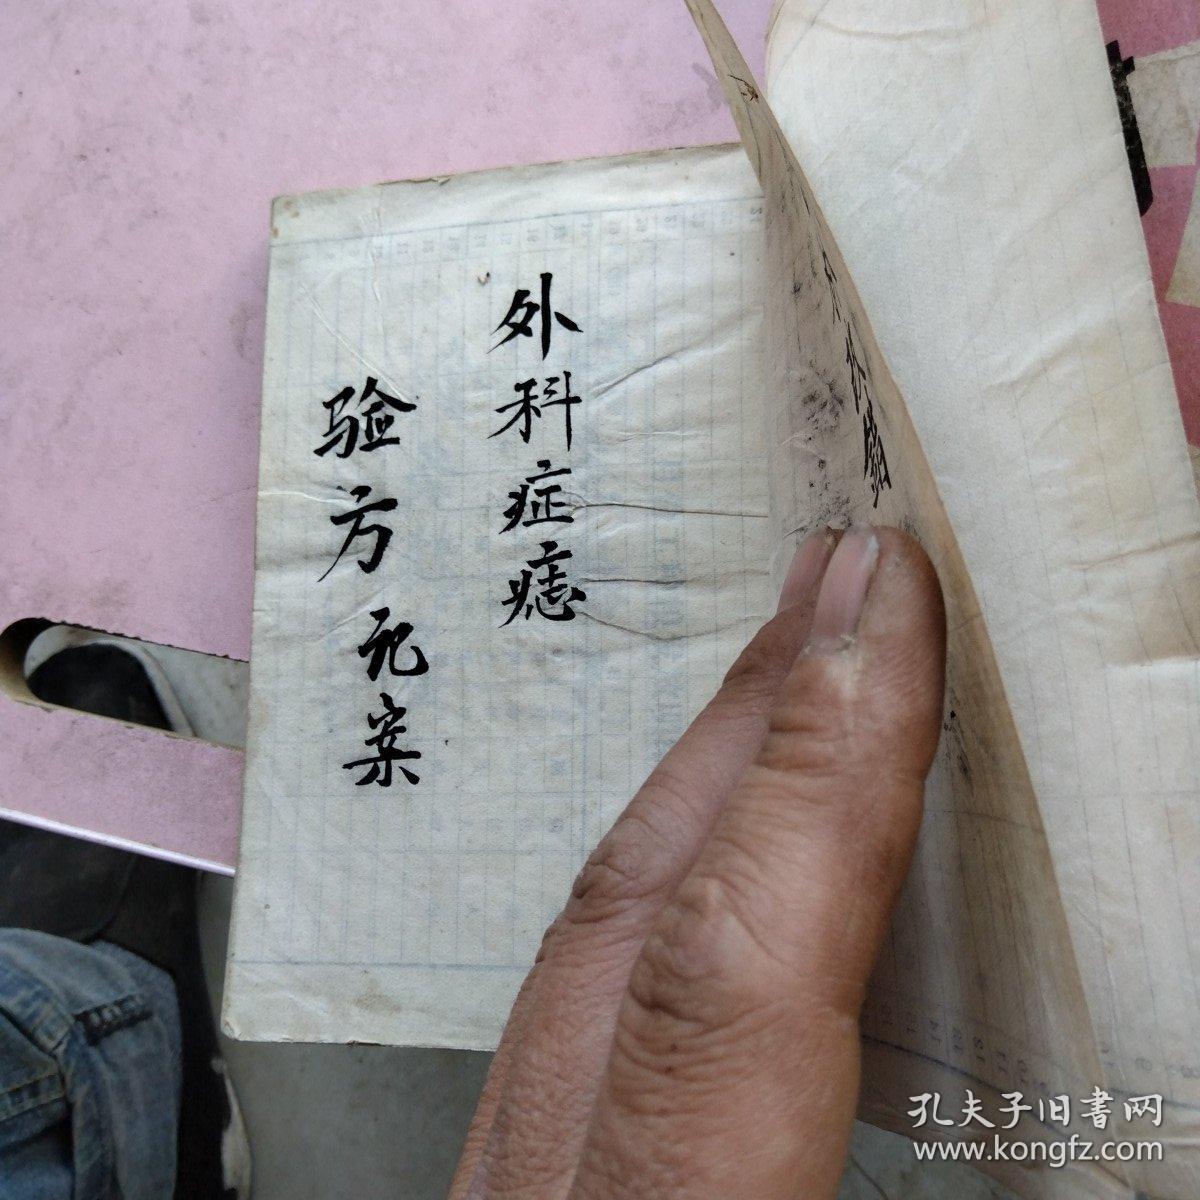 外科症痣
验方死案
孔夫子旧書网
www.kongfz.com